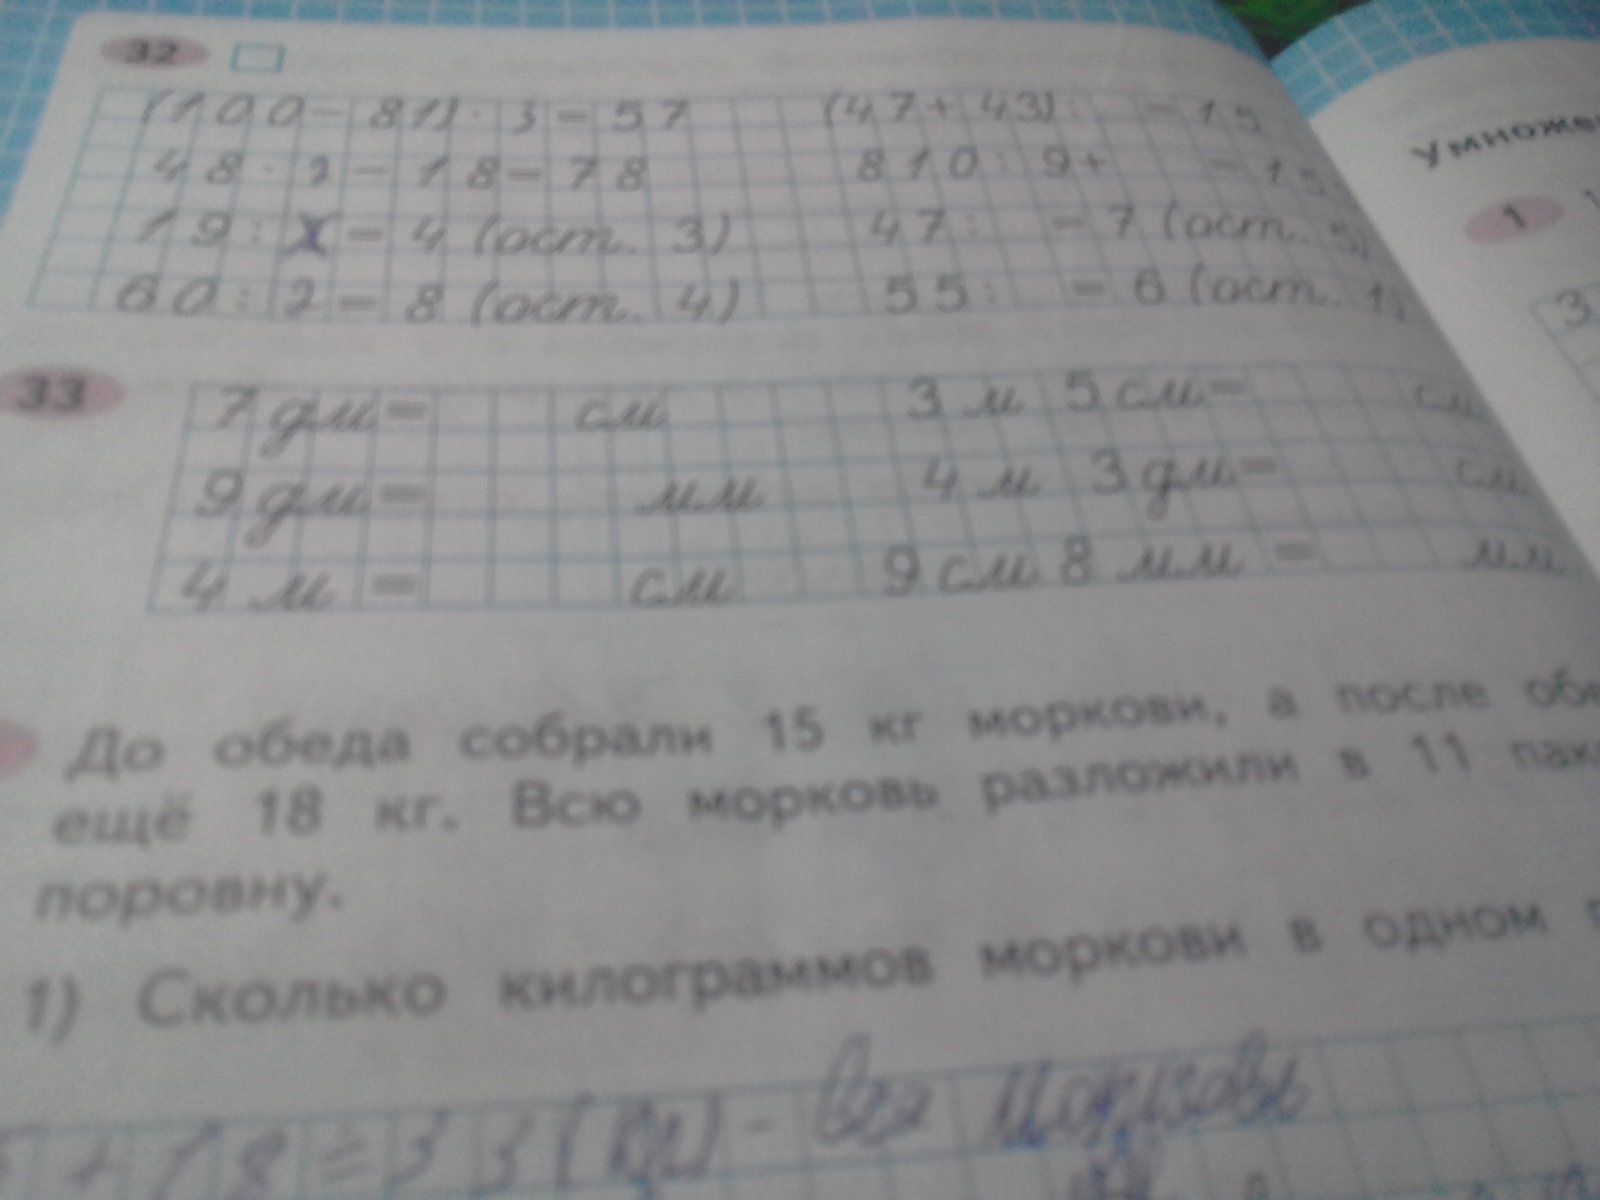 32
(100-81)·3=57 (47+43): =15
48·2-18=78 810:9+ =15
19:x=4 (ост. 3) 47: =7 (ост. 5)
60:2=8 (ост. 4) 55: =6 (ост. 1)
33
7 дм= см 3 м 5 см= см
9 дм= мм 4 м 3 дм= см
4 м = см 9 см 8 мм = мм
До обеда собрали 15 кг моркови, а после
ещё 18 кг. Всю морковь разложили в 11
поровну.
1) Сколько килограммов моркови в одном
+18=33(кг)- вся морковь
1
3